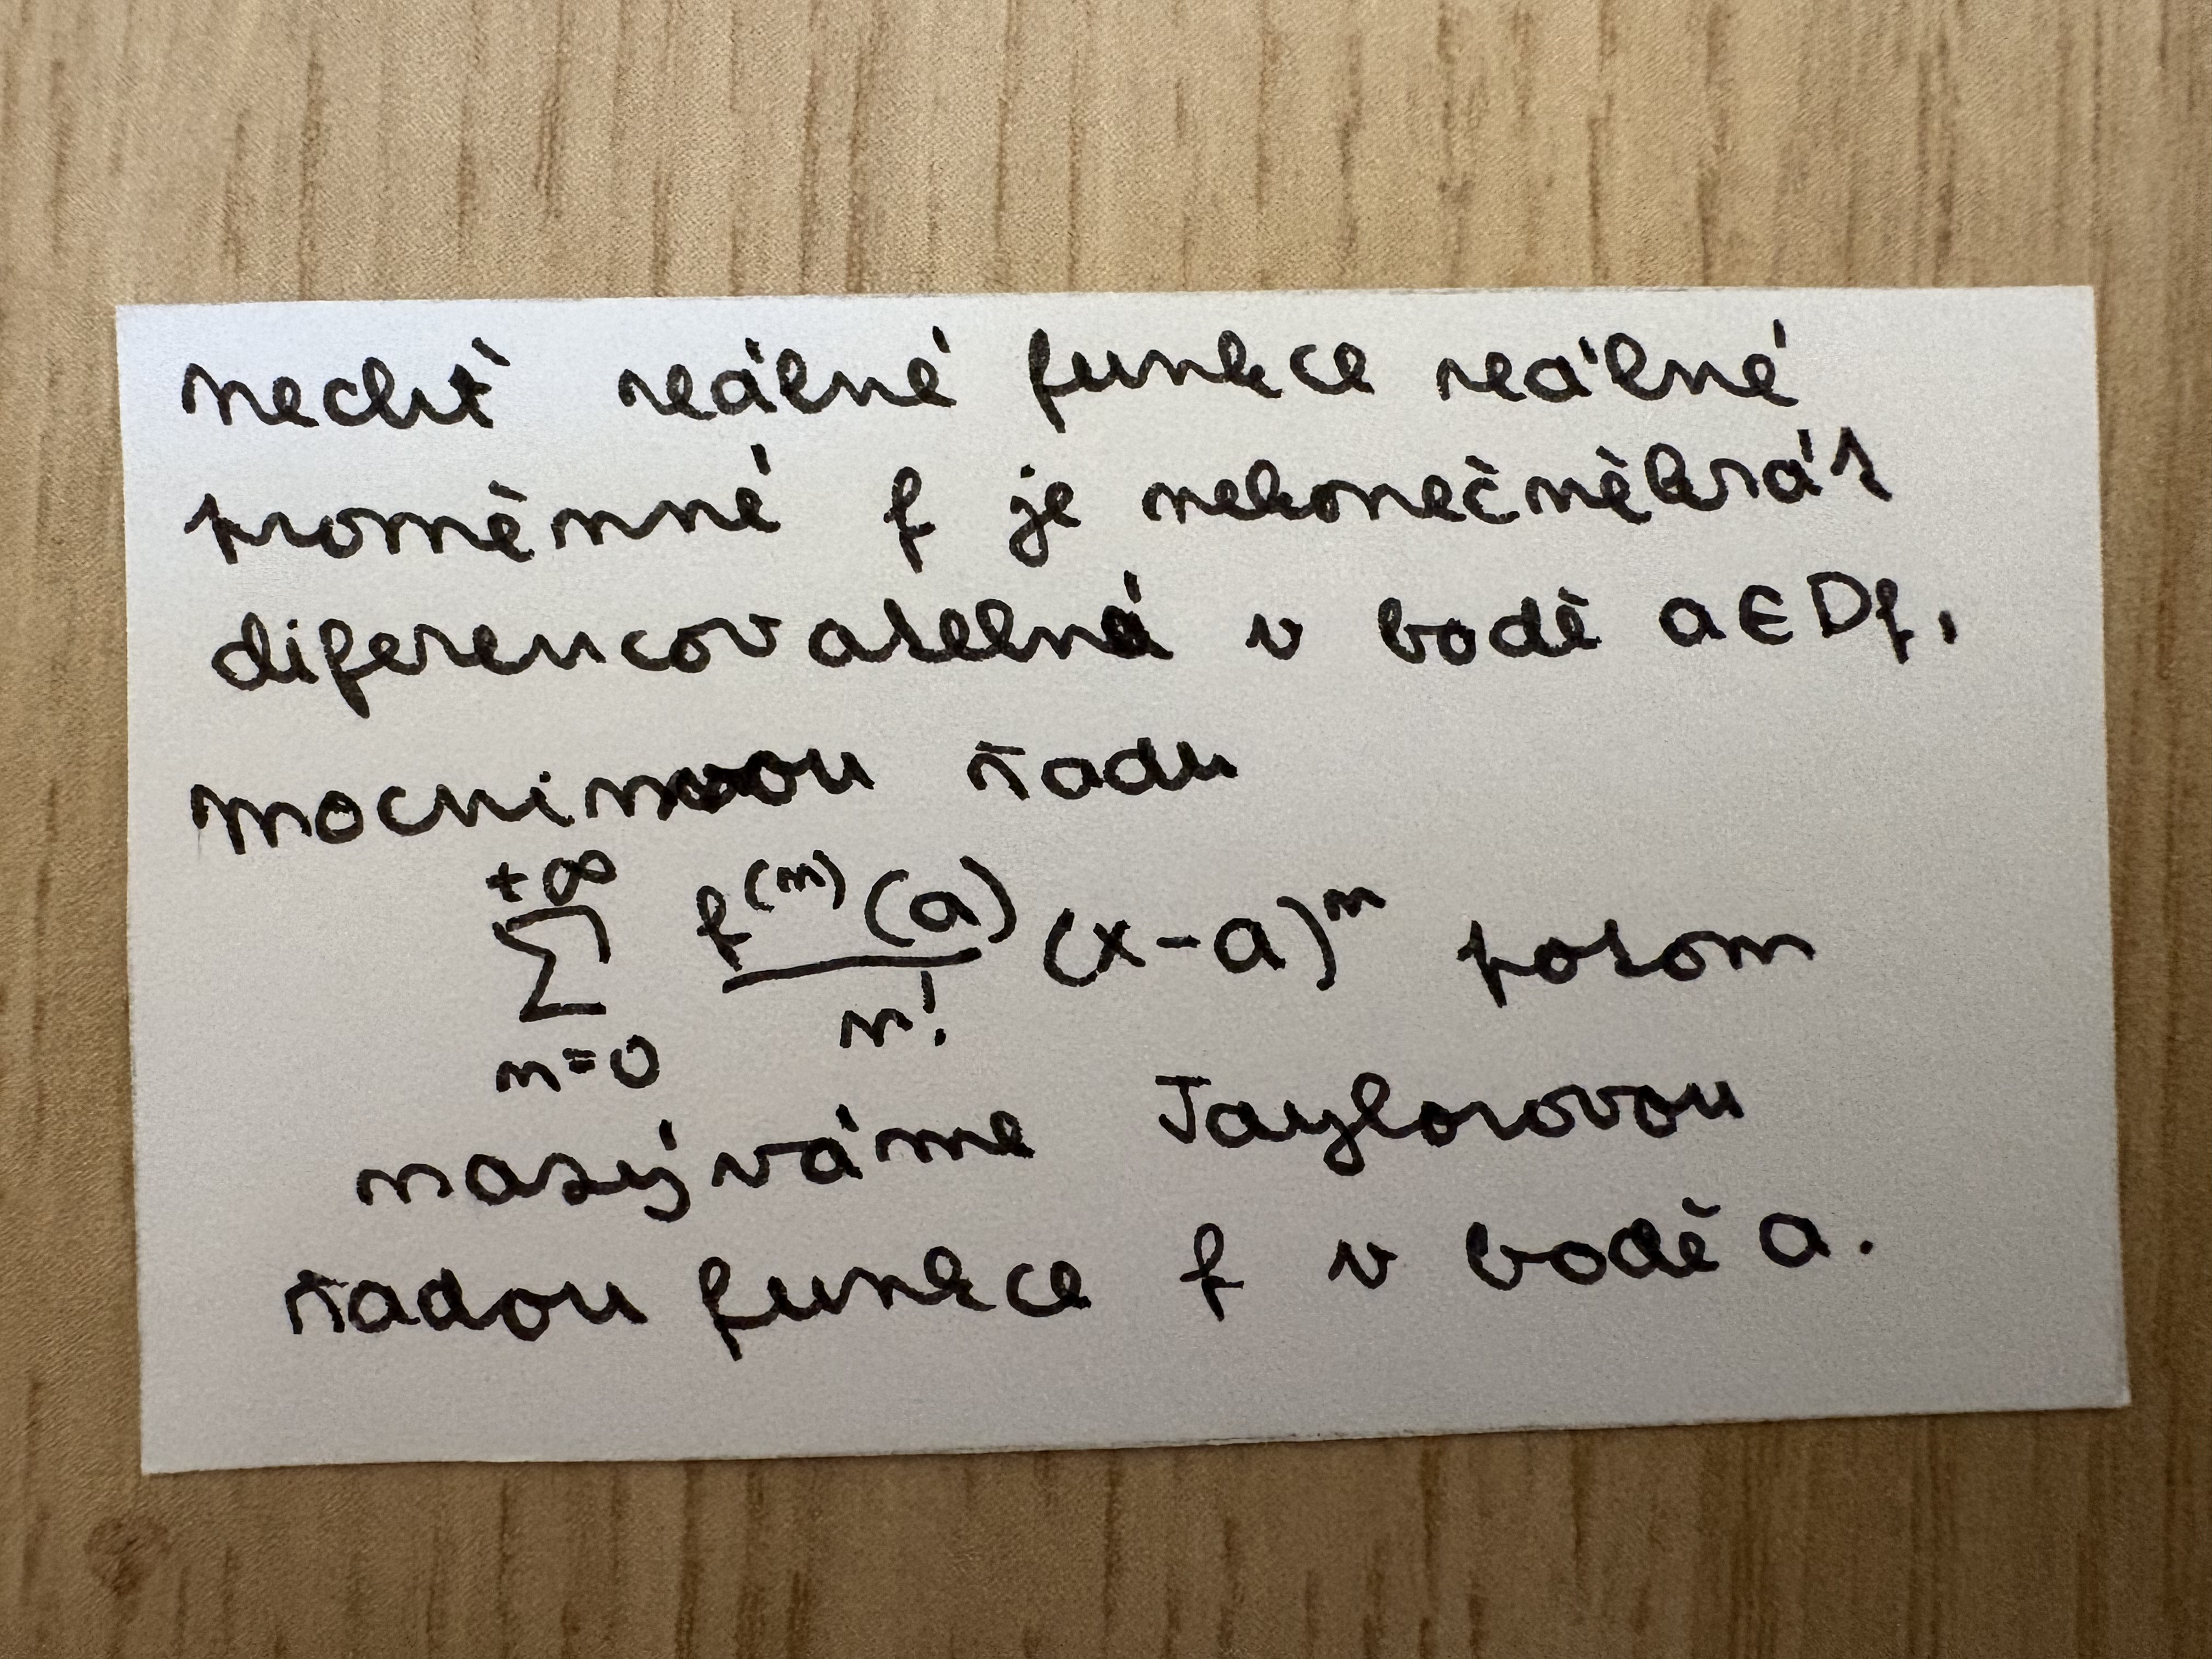 Nechť reálné funkce reálné
proměnné f je nekonečněkrát
diferencovatelná v bodě a∈Df,
mocninnou řadu
+∞
∑ f⁽ⁿ⁾(a)/n! (x-a)ⁿ potom
n=0
nazýváme Taylorovou
řadou funkce f v bodě a.